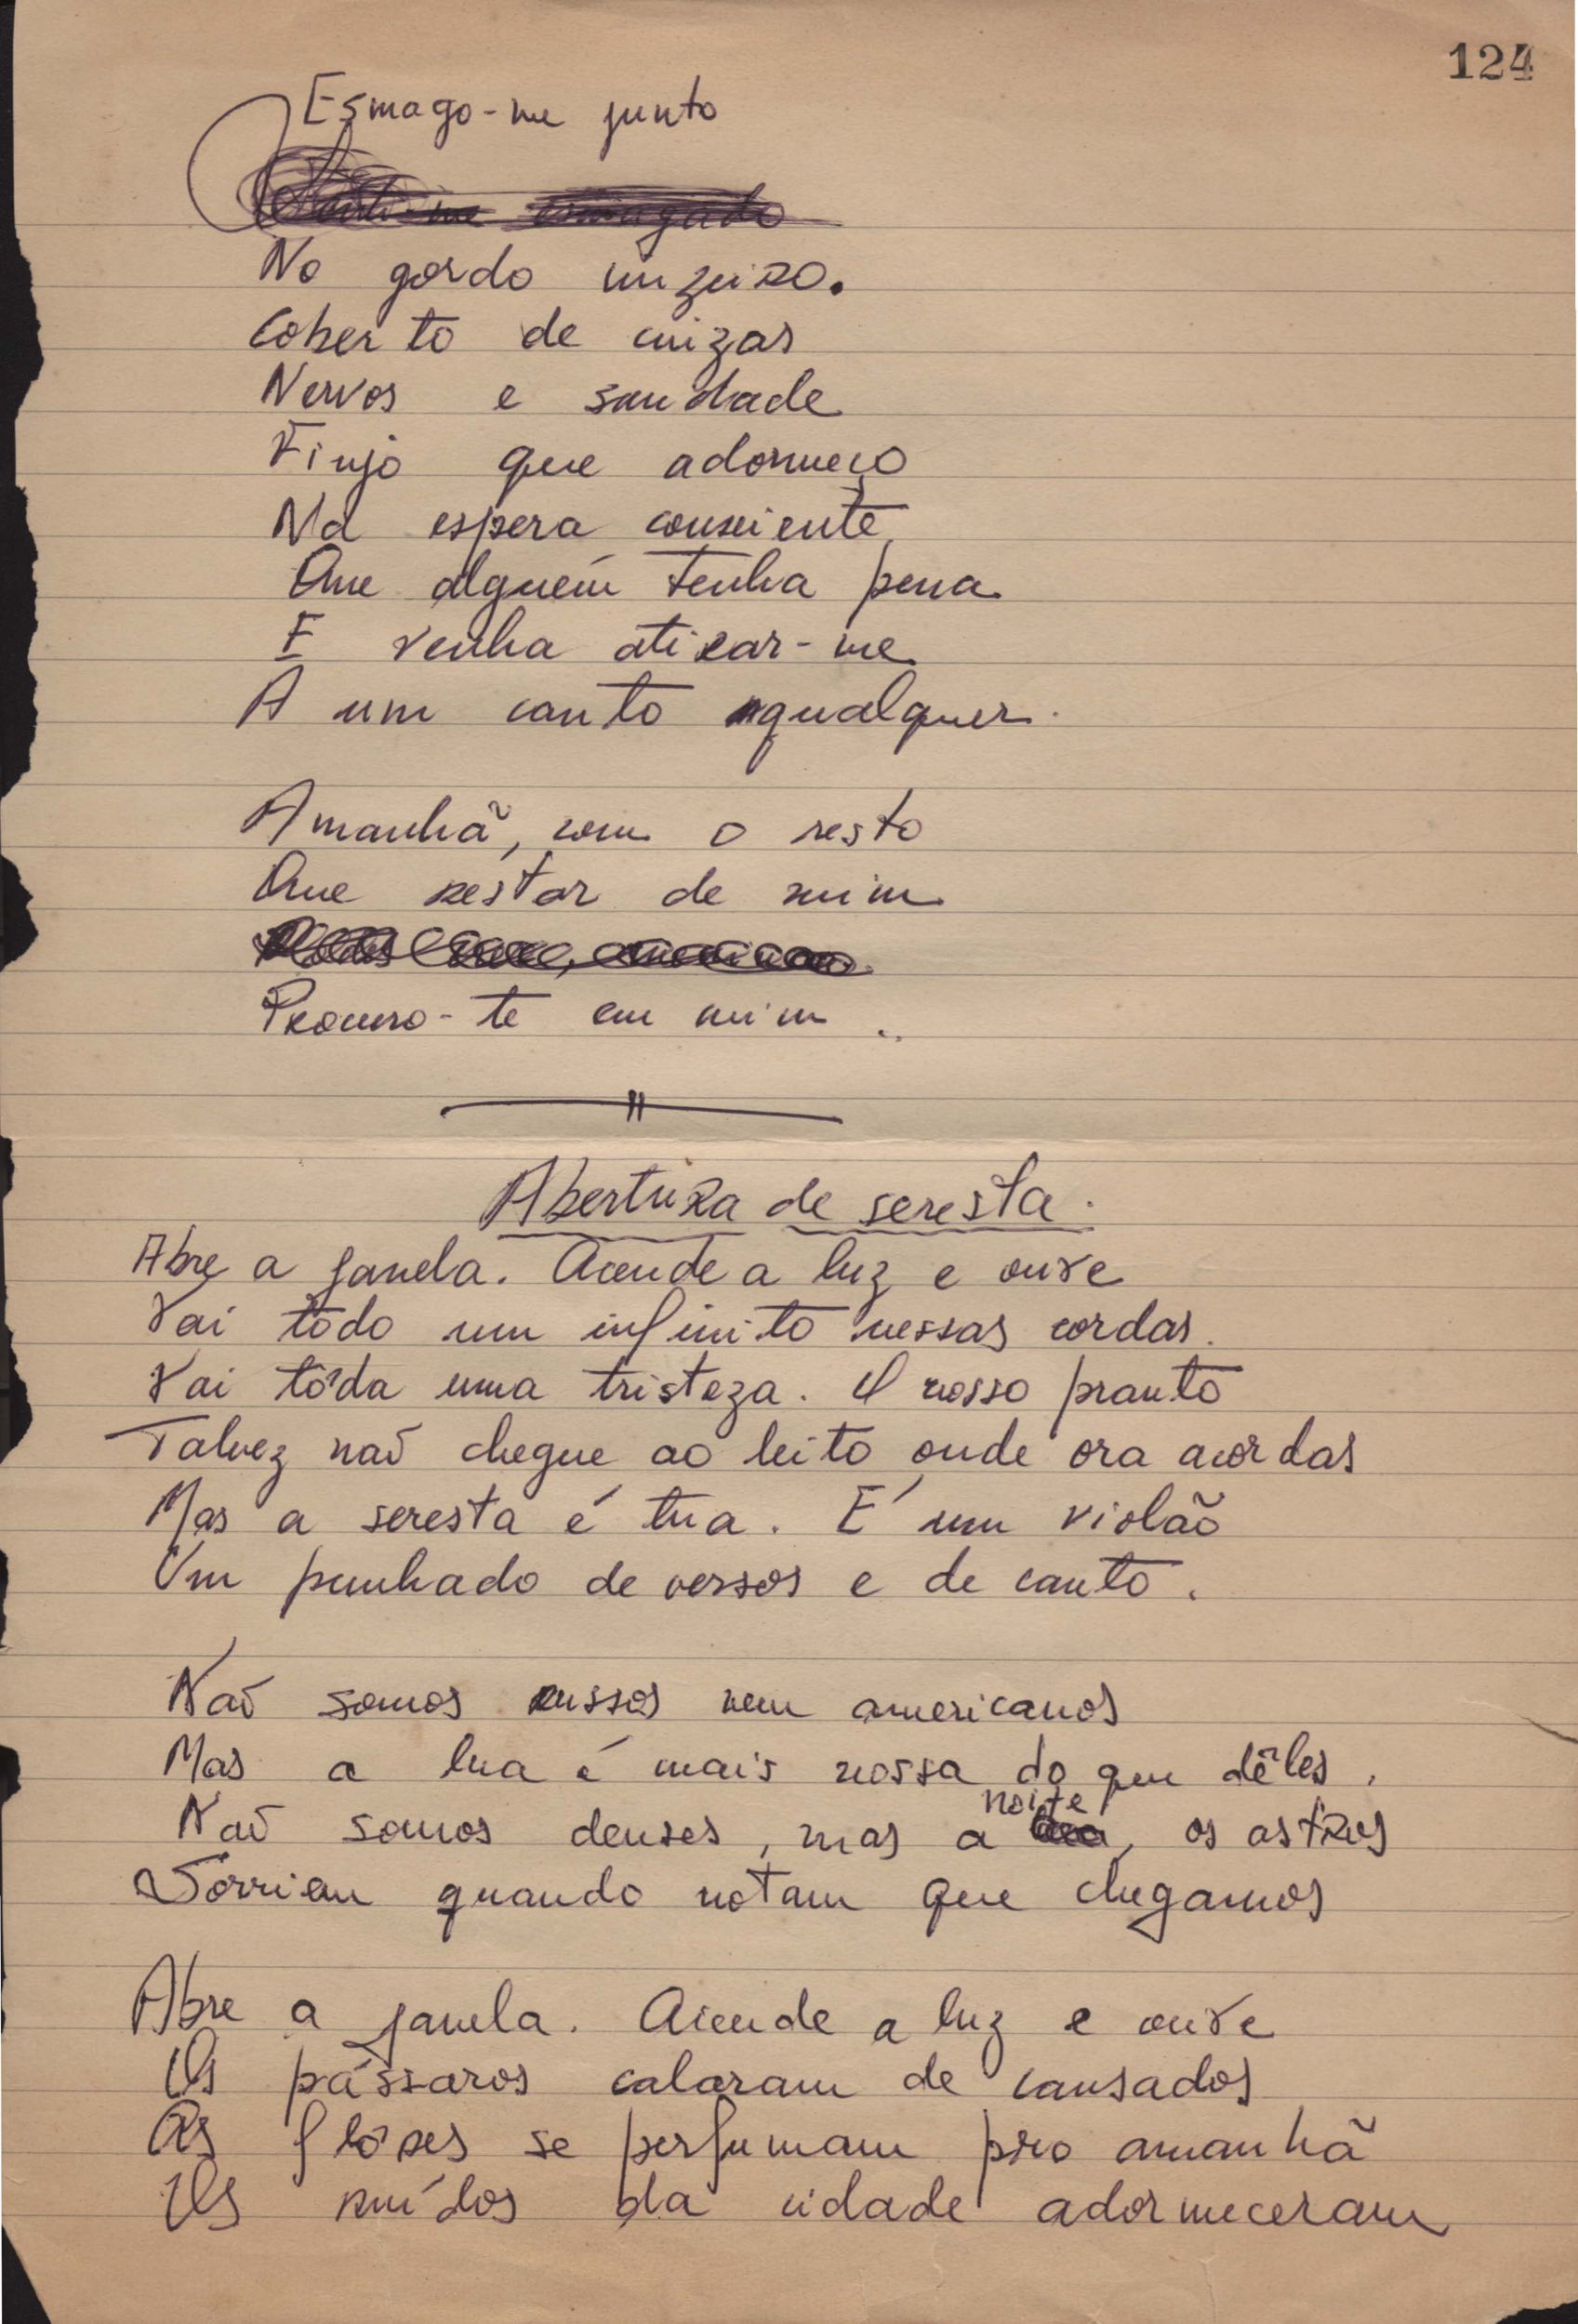 124
Esmago-me junto
No gordo cinzeiro.
Coberto de cinzas
Nervos e saudade
Finjo que adormeço
Na espera consciente
Que alguém tenha pena
E venha atirar-me
A um canto qualquer.
Amanhã, com o resto
Que restar de mim
Procuro-te em mim ..
Abertura de seresta.
Abre a janela. Acende a luz e ouve
Vai todo um infinito nessas cordas.
Vai tôda uma tristeza. O nosso pranto
Talvez não chegue ao leito onde ora acordas
Mas a seresta é tua. É um violão
Um punhado de versos e de canto.
Não somos russos nem americanos
Mas a lua é mais nossa do que dêles.
Não somos deuses, mas a noite, os astros
Sorriem quando notam que chegamos
Abre a janela. Acende a luz e ouve
Os pássaros calaram de cansados
As flôres se perfumam pro amanhã
Os ruídos da cidade adormeceram